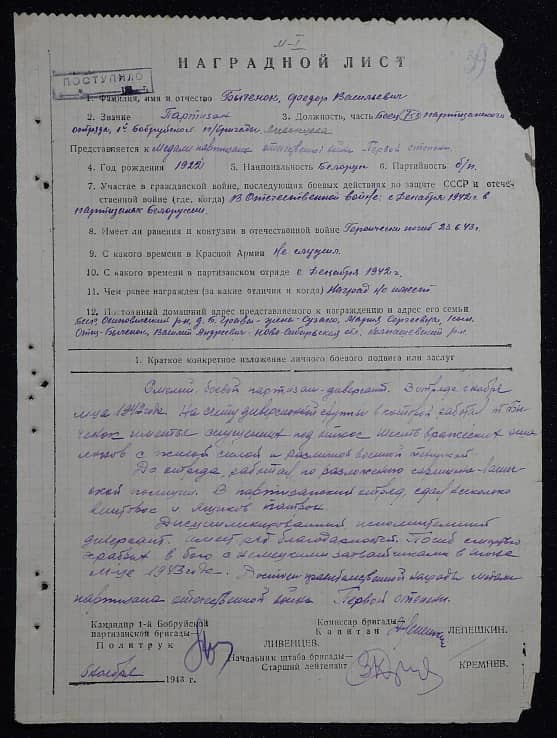 М-I
НАГРАДНОЙ ЛИСТ
ПОСТУПИЛО
1. Фамилия, имя и отчество Быченок, Федор Васильевич
2. Звание Партизан 3. Должность, часть Боец партизанского
отряда, 1й Бобруйской п/бригады
Представляется к Медали партизана отечественной войны Первой степени.
4. Год рождения 1922 5. Национальность Белорус 6. Партийность б/п.
7. Участие в гражданской войне, последующих боевых действиях по защите СССР и отече-
ственной войне (где, когда) В Отечественной войне: с декабря 1942 г. в
партизанах Белоруссии.
8. Имеет ли ранения и контузии в отечественной войне Героически погиб 23.6.43 г.
9. С какого времени в Красной Армии Не служил
10. С какого времени в партизанском отряде с декабря 1942 г.
11. Чем ранее награжден (за какие отличия и когда) Наград не имеет
12. Постоянный домашний адрес представляемого к награждению и адрес его семьи
БССР, Осиповичский р-н, жена Мария Сергеевна,
Отец-Быченок, Василий Андреевич-Ново-Сибирская обл. р-н.
1. Краткое конкретное изложение личного боевого подвига или заслуг
Смелый, боевой партизан-диверсант. В отряде с ноября
м-ца 1942 года. На счету диверсионной группы в которой работал т. Бы-
ченок имеется спущенных под откос шесть вражеских эше-
лонов с живой силой и различной военной техникой.
До отряда, работал по разложению
полиции. В партизанский отряд, сдал несколько
винтовок и патрон.
Дисциплинированный, исполнительный
диверсант. Имеет ряд благодарностей. Погиб смертью
храбрых в бою с немецкими захватчиками в июне
м-це 1943 года. Достоин правительственной награды медали
партизана отечественной войны Первой степени.
Камандир 1-й Бобруйской
партизанской бригады—
Политрук ЛИВЕНЦЕВ.
Комиссар бригады—
Капитан ЛЕПЕШКИН.
Начальник штаба бригады—
Старший лейтенант КРЕМНЕВ.
ноября 1943 г.